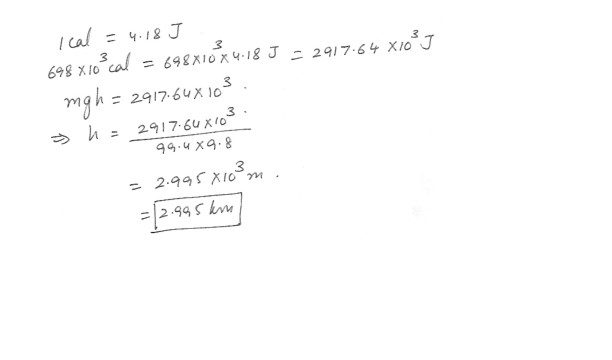 1 cal = 4.18 J
698 × 10³ cal = 698 × 10³ × 4.18 J = 2917.64 × 10³ J
mgh = 2917.64 × 10³.
⇒ h = 2917.64 × 10³.
99.4 × 9.8
= 2.995 × 10³ m.
= 2.995 km